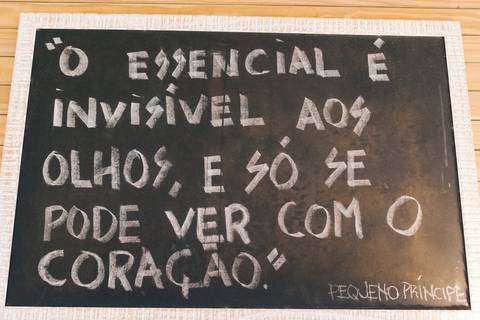 "O ESSENCIAL É
INVISÍVEL AOS
OLHOS, E SÓ SE
PODE VER COM O
CORAÇÃO."
PEQUENO PRÍNCIPE